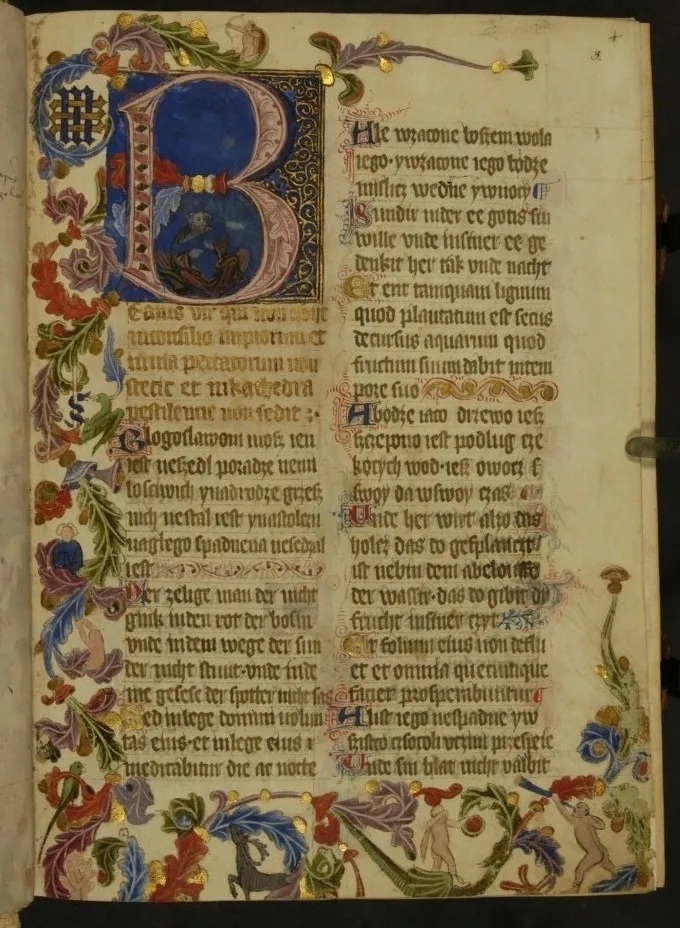 B
eatus vir qui non abijt
in consilio impiorum et
in via peccatorum non
stetit et in kathedra
pestilencie non sedit :
Blogoslawoni mosz ien
iest neszedl po radze nemi
losciwich ynadrodze grzesz
nich nestal iest ynastolczu
naglego spadnena nesedzal
iest
Der zelige man der nicht
gink in den rot der bosin
vnde in dem wege der sun
der nicht stunt vnde in de
me gesese der spotter nicht sas
Sed in lege domini volun
tas eius et in lege eius
meditabitur die ac nocte
3
Ale wzacone boszem wola
iego ywzacone iego bodze
mislicz we dne ywnocy
Sundir in der ee gotis sin
wille vnde in siner ee ge
denkit her tak vnde nacht
Et erit tamquam lignum
quod plantatum est secus
decursus aquarum quod
fructum suum dabit in tem
pore suo
A bodze iaco drzewo iesz
szczepono iest podlug cze
kocych wod iesz owocz
swoy da wswoy czas
Unde her wirt alzo das
holcz das do
ist nebin dem
der wassir das do gibit
frucht in siner czyt
Et folium eius non deflu
et et omnia quecunque
faciet prosperabuntur
A list iego nespadne yw
szistco czsocoli vczini przespeie
Unde sin blat nicht